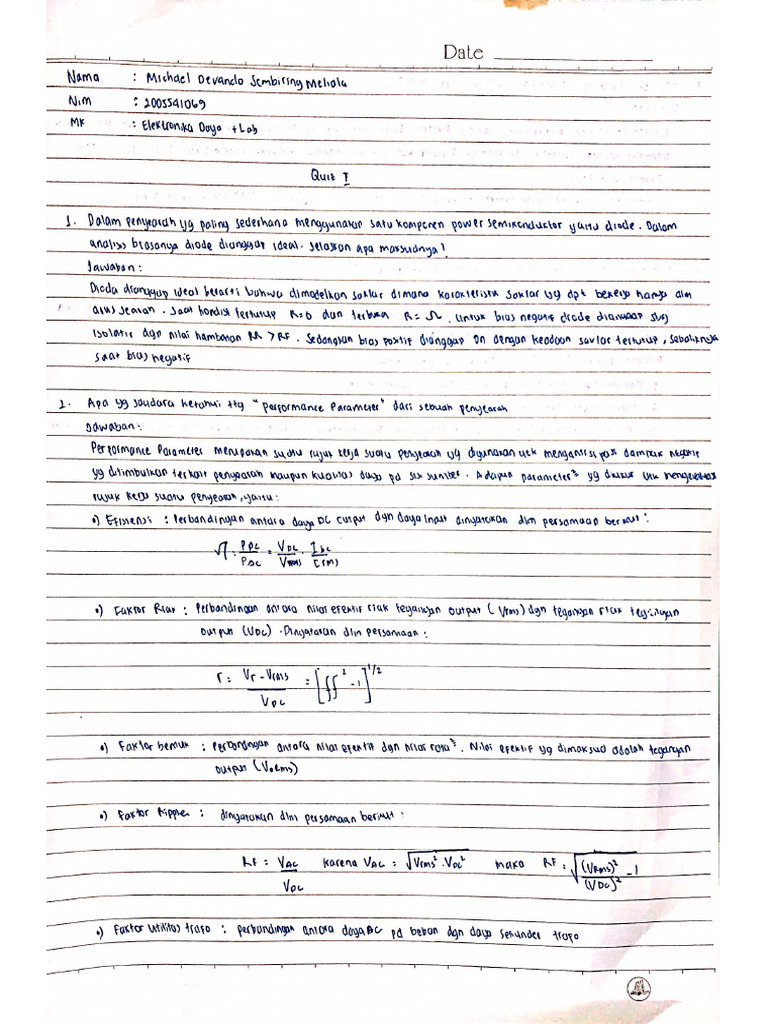 Date
Nama : Michael Devando Sembiring Meliala
Nim : 2005541069
MK : Elektronika Daya + Lab
Quiz I
1. Dalam penyearah yg paling sederhana menggunakan satu komponen power semikonduktor yaitu diode. Dalam
analisis biasanya diode dianggap ideal. Jelaskan apa maksudnya!
Jawaban:
Dioda dianggap ideal berarti bahwa dimodelkan saklar dimana karakteristik saklar yg dpt bekerja hanya dlm
arus searah. Saat kondisi tertutup R=0 dan terbuka R=Ω. Untuk bias negatif diode dianggap sbg
Isolator dgn nilai hambatan RR > RF. Sedangkan bias positif dianggap on dengan keadaan saklar tertutup, sebaliknya
saat bias negatif
2. Apa yg saudara ketahui ttg "Performance Parameter" dari sebuah penyearah
Jawaban:
Performance Parameter merupakan suatu rujuk kerja suatu penyearah yg digunakan utk mengantisipasi dampak negatif
yg ditimbulkan terkait penyearah maupun kualitas daya pd sisi sumber. Adapun parameter² yg diukur utk
rujuk kerja suatu penyearah, yaitu:
•) Efisiensi : Perbandingan antara daya DC output dgn daya input dinyatakan dlm persamaan berikut:
η = PDC/PAC = VDC/Vrms . IDC/I(rms)
•) Faktor Riak : Perbandingan antara nilai efektif riak tegangan output (Vrms) dgn tegangan riak tegangan
output (VDC). Dinyatakan dlm persamaan:
r = Vr-Vrms/VDC = [ff² -1]^1/2
•) Faktor bentuk : Perbandingan antara nilai efektif dgn nilai rata². Nilai efektif yg dimaksud adalah tegangan
output (Vorms)
•) Faktor Ripple : dinyatakan dlm persamaan berikut:
RF = VAC/VDC karena VAC = √Vrms².VDC² maka RF = √(VRms)²/(VDC)² -1
•) Faktor utilitas trafo : perbandingan antara daya DC pd beban dgn daya sekunder trafo